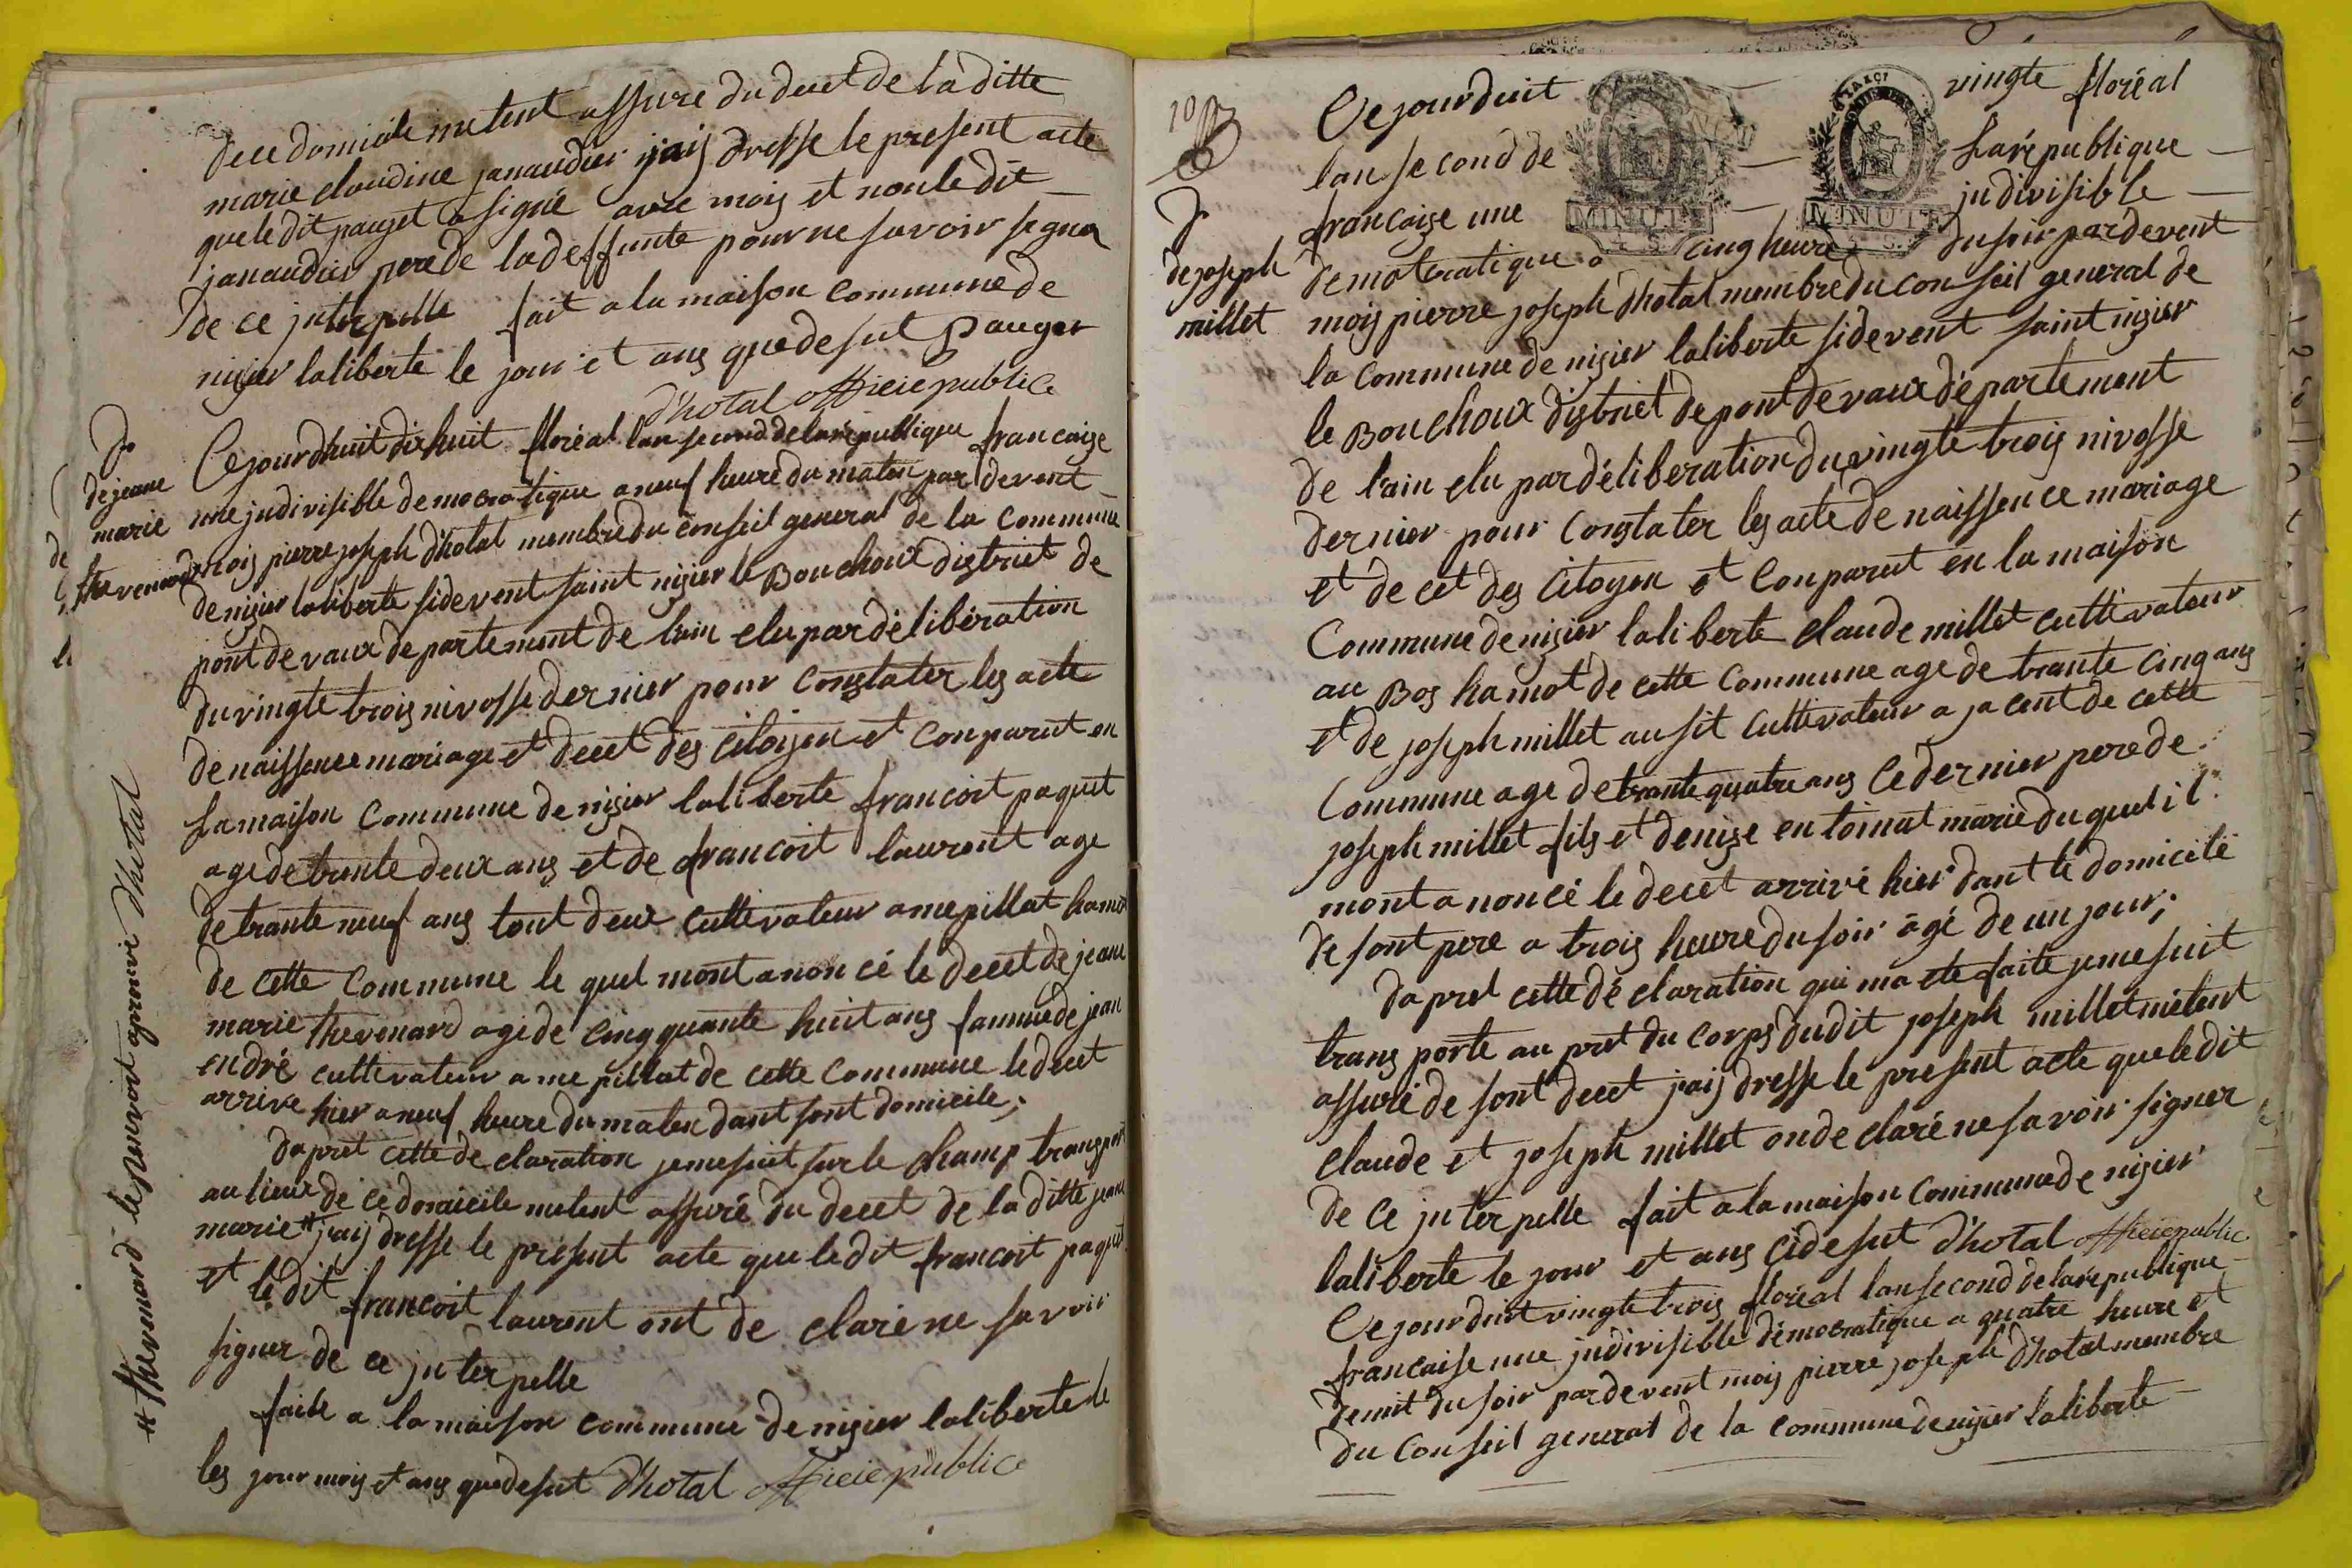 de ce domicile metent assure du decet de la ditte
marie claudine janaudier jaij dresse le present acte
que le dit pauget a signé avec mois et non le dit
janaudier pere de la deffunte pour ne savoir signer
de ce interpelle fait a la maison commune de
nisier laliberte le jour et ans que desut Pauger
d'hotal officie publice
D
de jeane
marie
thevenard
Cejourdhuit dix huit floréal lan second de la republique francaise
une indivisible democratique a neuf heure du maten par devent
mois pierre joseph d'hotal membre du conseil general de la commune
de nisier laliberte sidevent saint nisier le Bouchoux district de
pont de vaux departement de lain elu par déliberation
du vingte trois nivosse dernier pour constater les acte
de naissence mariage et decet des citoyen et conparut en
la maison commune de nisier laliberte francoit paquet
age de trante deux ans et de francoit laurent age
de trante neuf ans tout deux cultivateur a mepillat hamot
de cette commune le quel mont anoncé le decet de jeane
marie thevenard agé de cinquante huit ans famme de jean
endré cultivateur a me pillat de cette commune le decet
arrive hier a neuf heure du maten dant sont domicile;
dapret cette declaration jemesuit sur le champ transport
au lieux de ce domicile metent assuré du decet de la ditte jeane
marie # jaij dresse le présent acte que le dit francoit paquet
et le dit francoit laurent ont de claré ne savoir
signer de ce interpelle
faite a la maison commune de nisier laliberte le
les jour mois et ans que desut d'hotal officie publice
# thevenard le renvoit aprouvé d'hotal
10
D
de joseph
millet
Cejourduit vingte floréal
lan second de la république
francaise une indivisible
demotcratique a cinq heure du soir par devent
mois pierre joseph d'hotal membre du conseil general de
la commune de nisier laliberte sidevent saint nisier
le Bouchoux district de pont de vaux département
de l'ain elu par déliberation du vingte trois nivosse
dernier pour constater les acte de naissence mariage
et de cet des citoyen et conparut en la maison
commune de nisier laliberte claude millet cultivateur
au Bos hamot de cette commune age de trante cinq ans
et de joseph millet ausit cultivateur a jacent de cette
commune age de trante quatre ans ce dernier pere de
joseph millet fils et denise entoinat marie du quel il
mont anoncé le decet arrivé hier dant le domicile
de sont pere a trois heure du soir âgé de un jour;
dapret cette dé claration qui ma ete faite jemesuit
trans porte au pret du corps dudit joseph millet métent
assuré de sont decet jaij dresse le présent acte que le dit
claude et joseph millet on de claré ne savoir signer
de ce interpelle fait a la maison commune de nisier
laliberte le jour et ans cidesut d'hotal officie public
Cejourduit vingte trois floréal lan second de la republique
francaise une indivisible démocratique a quatre heure et
demit du soir par devent mois pierre joseph d'hotal membre
du conseil general de la commune de nisier laliberte